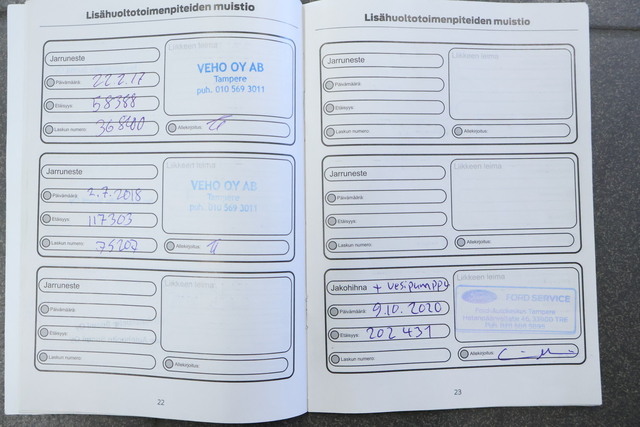 Lisähuoltotoimenpiteiden muistio
Jarruneste
Liikkeen leima
VEHO OY AB
Tampere
puh. 010 569 3011
Päivämäärä: 22.2.17
Etäisyys: 58388
Laskun numero: 368400
Allekirjoitus:
Jarruneste
Liikkeen leima
VEHO OY AB
Tampere
puh. 010 569 3011
Päivämäärä: 2.7.2018
Etäisyys: 117303
Laskun numero: 75207
Allekirjoitus:
Jarruneste
Liikkeen leima
Päivämäärä:
Etäisyys:
Laskun numero:
Allekirjoitus:
22
Lisähuoltotoimenpiteiden muistio
Jarruneste
Liikkeen leima
Päivämäärä:
Etäisyys:
Laskun numero:
Allekirjoitus:
Jarruneste
Liikkeen leima
Päivämäärä:
Etäisyys:
Laskun numero:
Allekirjoitus:
Jakohihna + vesipumppu
Liikkeen leima
FORD SERVICE
Päivämäärä: 9.10.2020
Etäisyys: 202 431
Laskun numero:
Allekirjoitus:
23